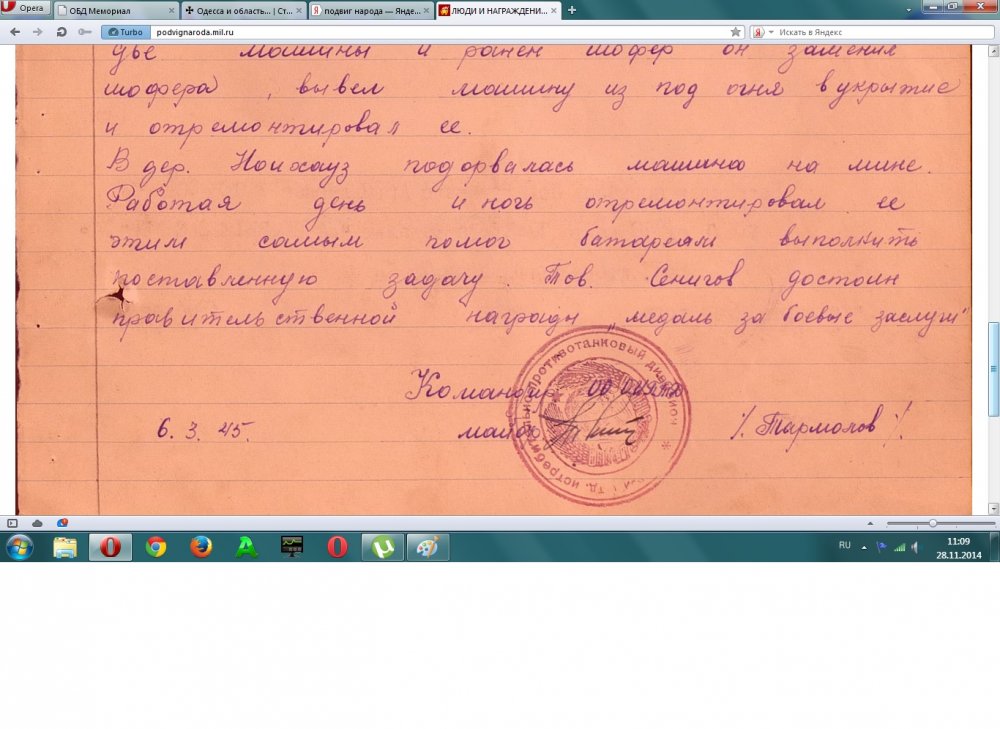 Opera
ОБД Мемориал
Одесса и область... | Ст...
подвиг народа — Янде...
ЛЮДИ И НАГРАЖДЕНИ...
Turbo
podvignaroda.mil.ru
Искать в Яндекс
машины и ранен шофер он заменил
шофера, вывел машину из под огня в укрытие
и отремонтировал ее.
В дер. Нойхауз подорвалась машина на мине.
Работая день и ночь отремонтировал ее
этим самым помог батареям выполнить
поставленную задачу. Тов. Сенигов достоин
правительственной награды „медаль за боевые заслуги"
Командир
противотанковый дивизион
6.3.45. майор /. Тармолов /.
RU
11:09
28.11.2014